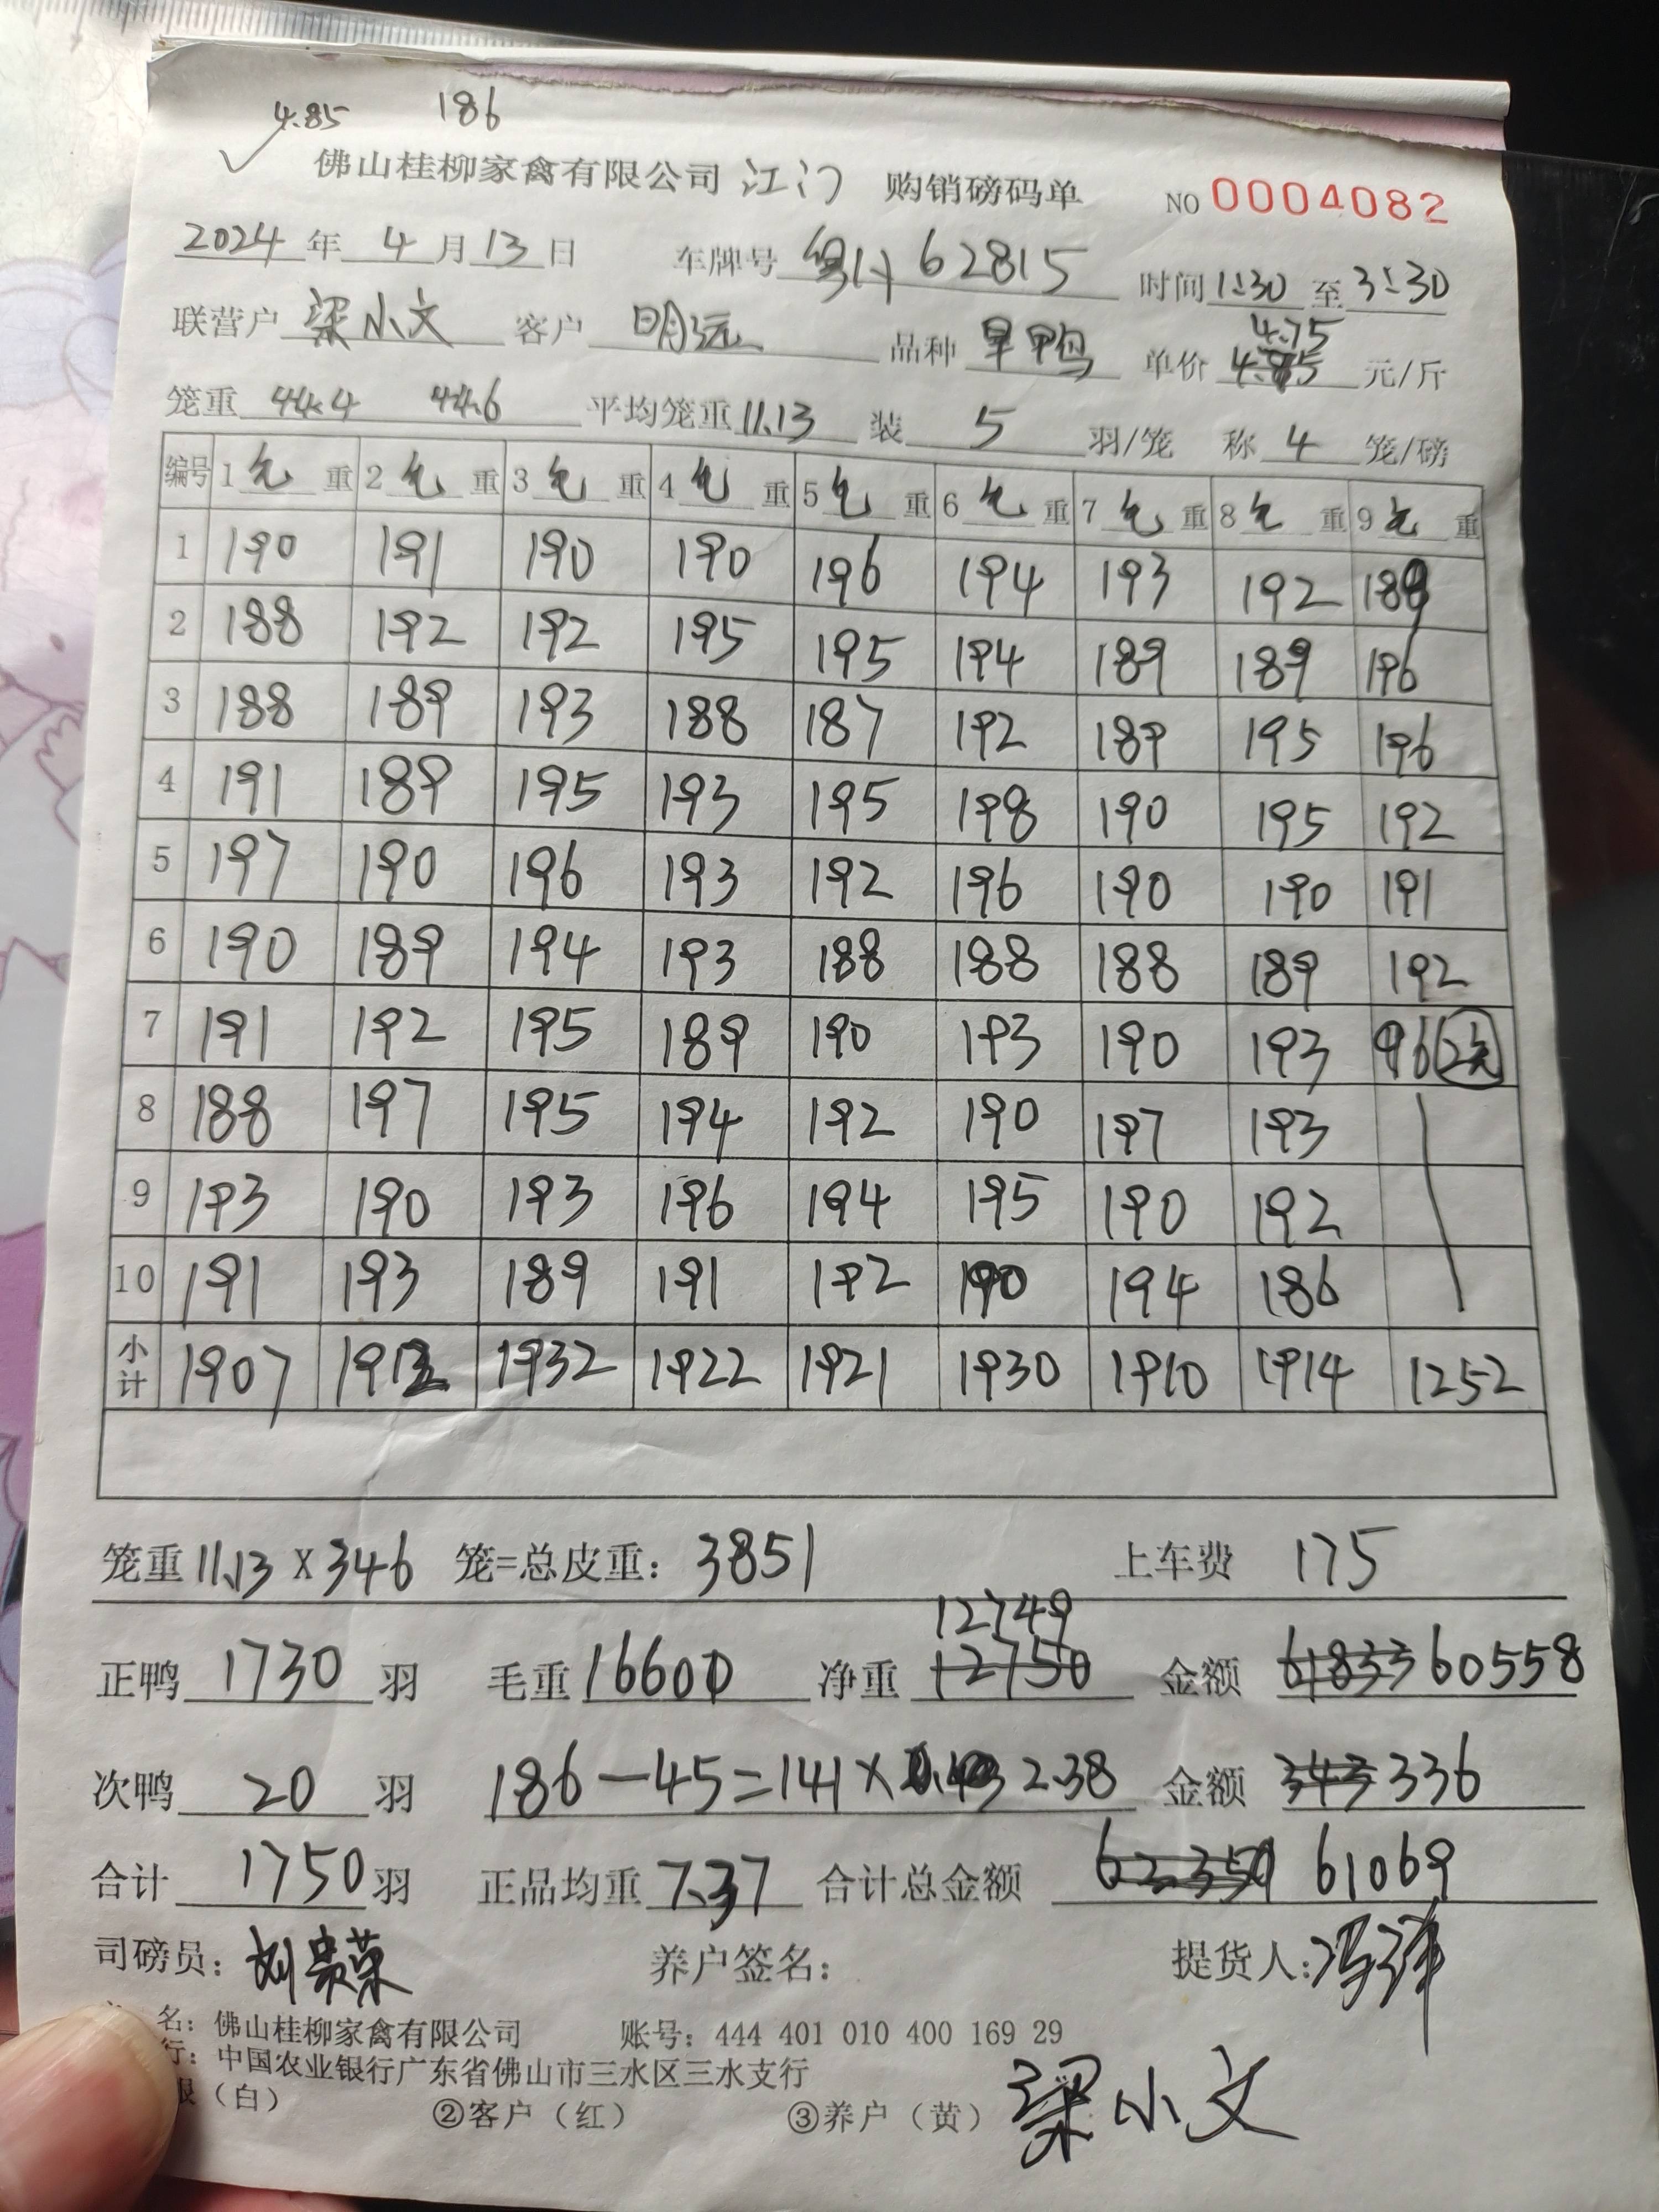 4.85 186
佛山桂柳家禽有限公司 江门 购销磅码单 NO 0004082
2024 年 4 月 13 日 车牌号 62815 时间 1:30 至 3:30
4.75
联营户 梁小文 客户 明远 品种 旱鸭 单价 4.85 元/斤
笼重 44.4 44.6 平均笼重 11.13 装 5 羽/笼 称 4 笼/磅
编号 1 毛 重 2 毛 重 3 毛 重 4 毛 重 5 毛 重 6 毛 重 7 毛 重 8 毛 重 9 毛 重
1 190 191 190 190 196 194 193 192 189
2 188 192 192 195 195 194 189 189 196
3 188 189 193 188 187 192 189 195 196
4 191 189 195 193 195 198 190 195 192
5 197 190 196 193 192 196 190 190 191
6 190 189 194 193 188 188 188 189 192
7 191 192 195 189 190 193 190 193 96
8 188 197 195 194 192 190 197 193
9 193 190 193 196 194 195 190 192
10 191 193 189 191 192 190 194 186
小计 1907 1912 1932 1922 1921 1930 1910 1914 1252
笼重 11.13 X 346 笼=总皮重: 3851 上车费 175
12749
正鸭 1730 羽 毛重 16600 净重 12750 金额 61833 60558
次鸭 20 羽 186-45=141× 2.38 金额 343 336
合计 1750 羽 正品均重 7.37 合计总金额 62350 61069
司磅员: 刘贵荣 养户签名: 提货人:
名: 佛山桂柳家禽有限公司 账号: 444 401 010 400 169 29
行: 中国农业银行广东省佛山市三水区三水支行
(白) ②客户(红) ③养户(黄) 梁小文